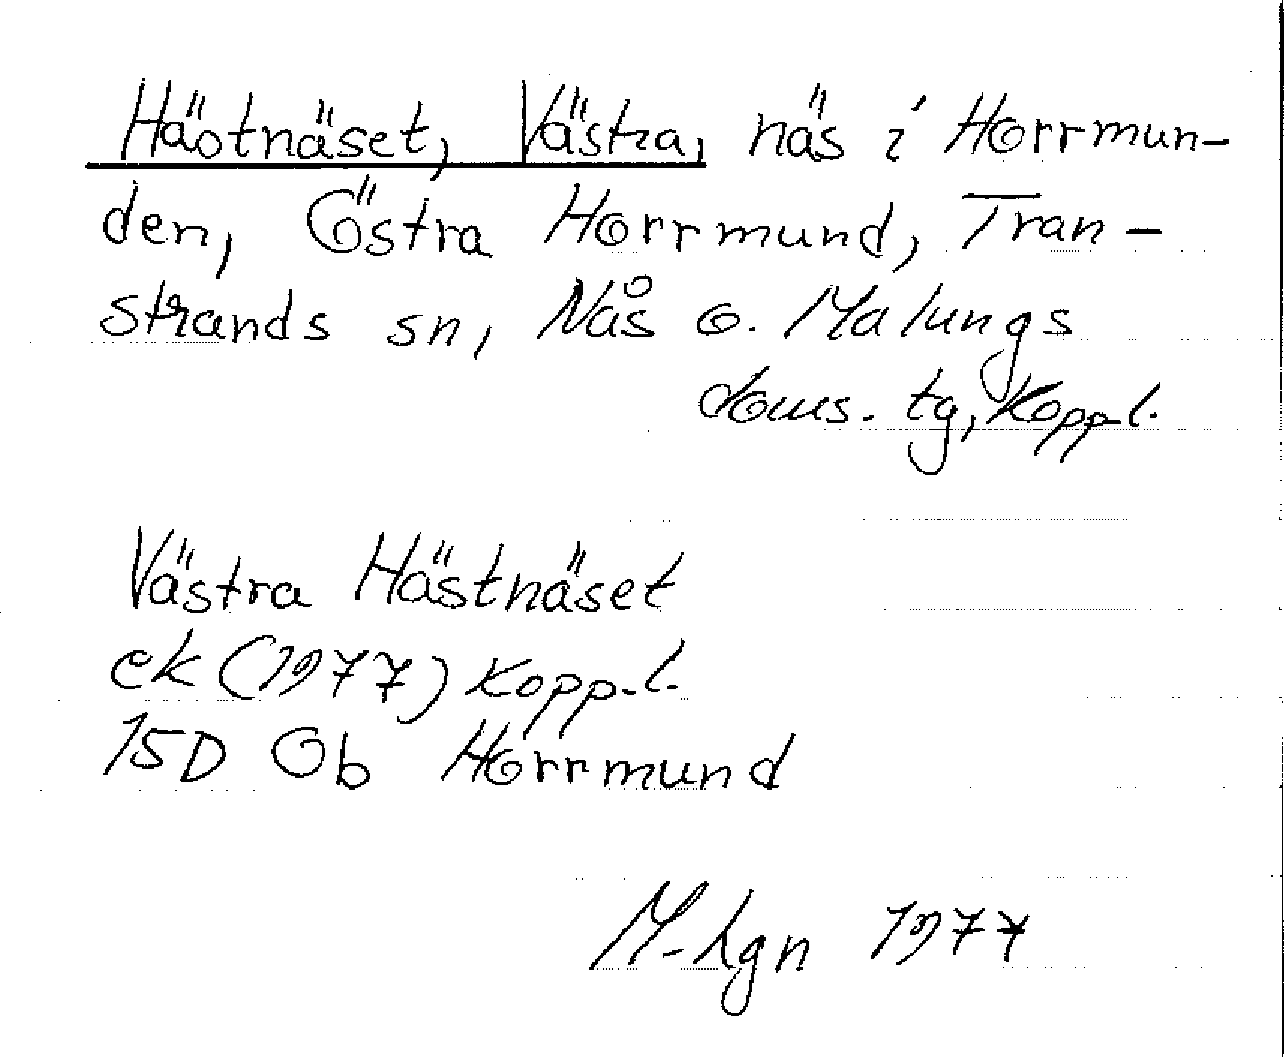 Hästnäset, Västra, näs i Horrmun-
den, Östra Horrmund, Tran-
strands sn, Nås o. Malungs
doms. tg, Kopp.l.
Västra Hästnäset
ek (1977) Kopp.l.
15D 0b Horrmund
M-Lgn 1977